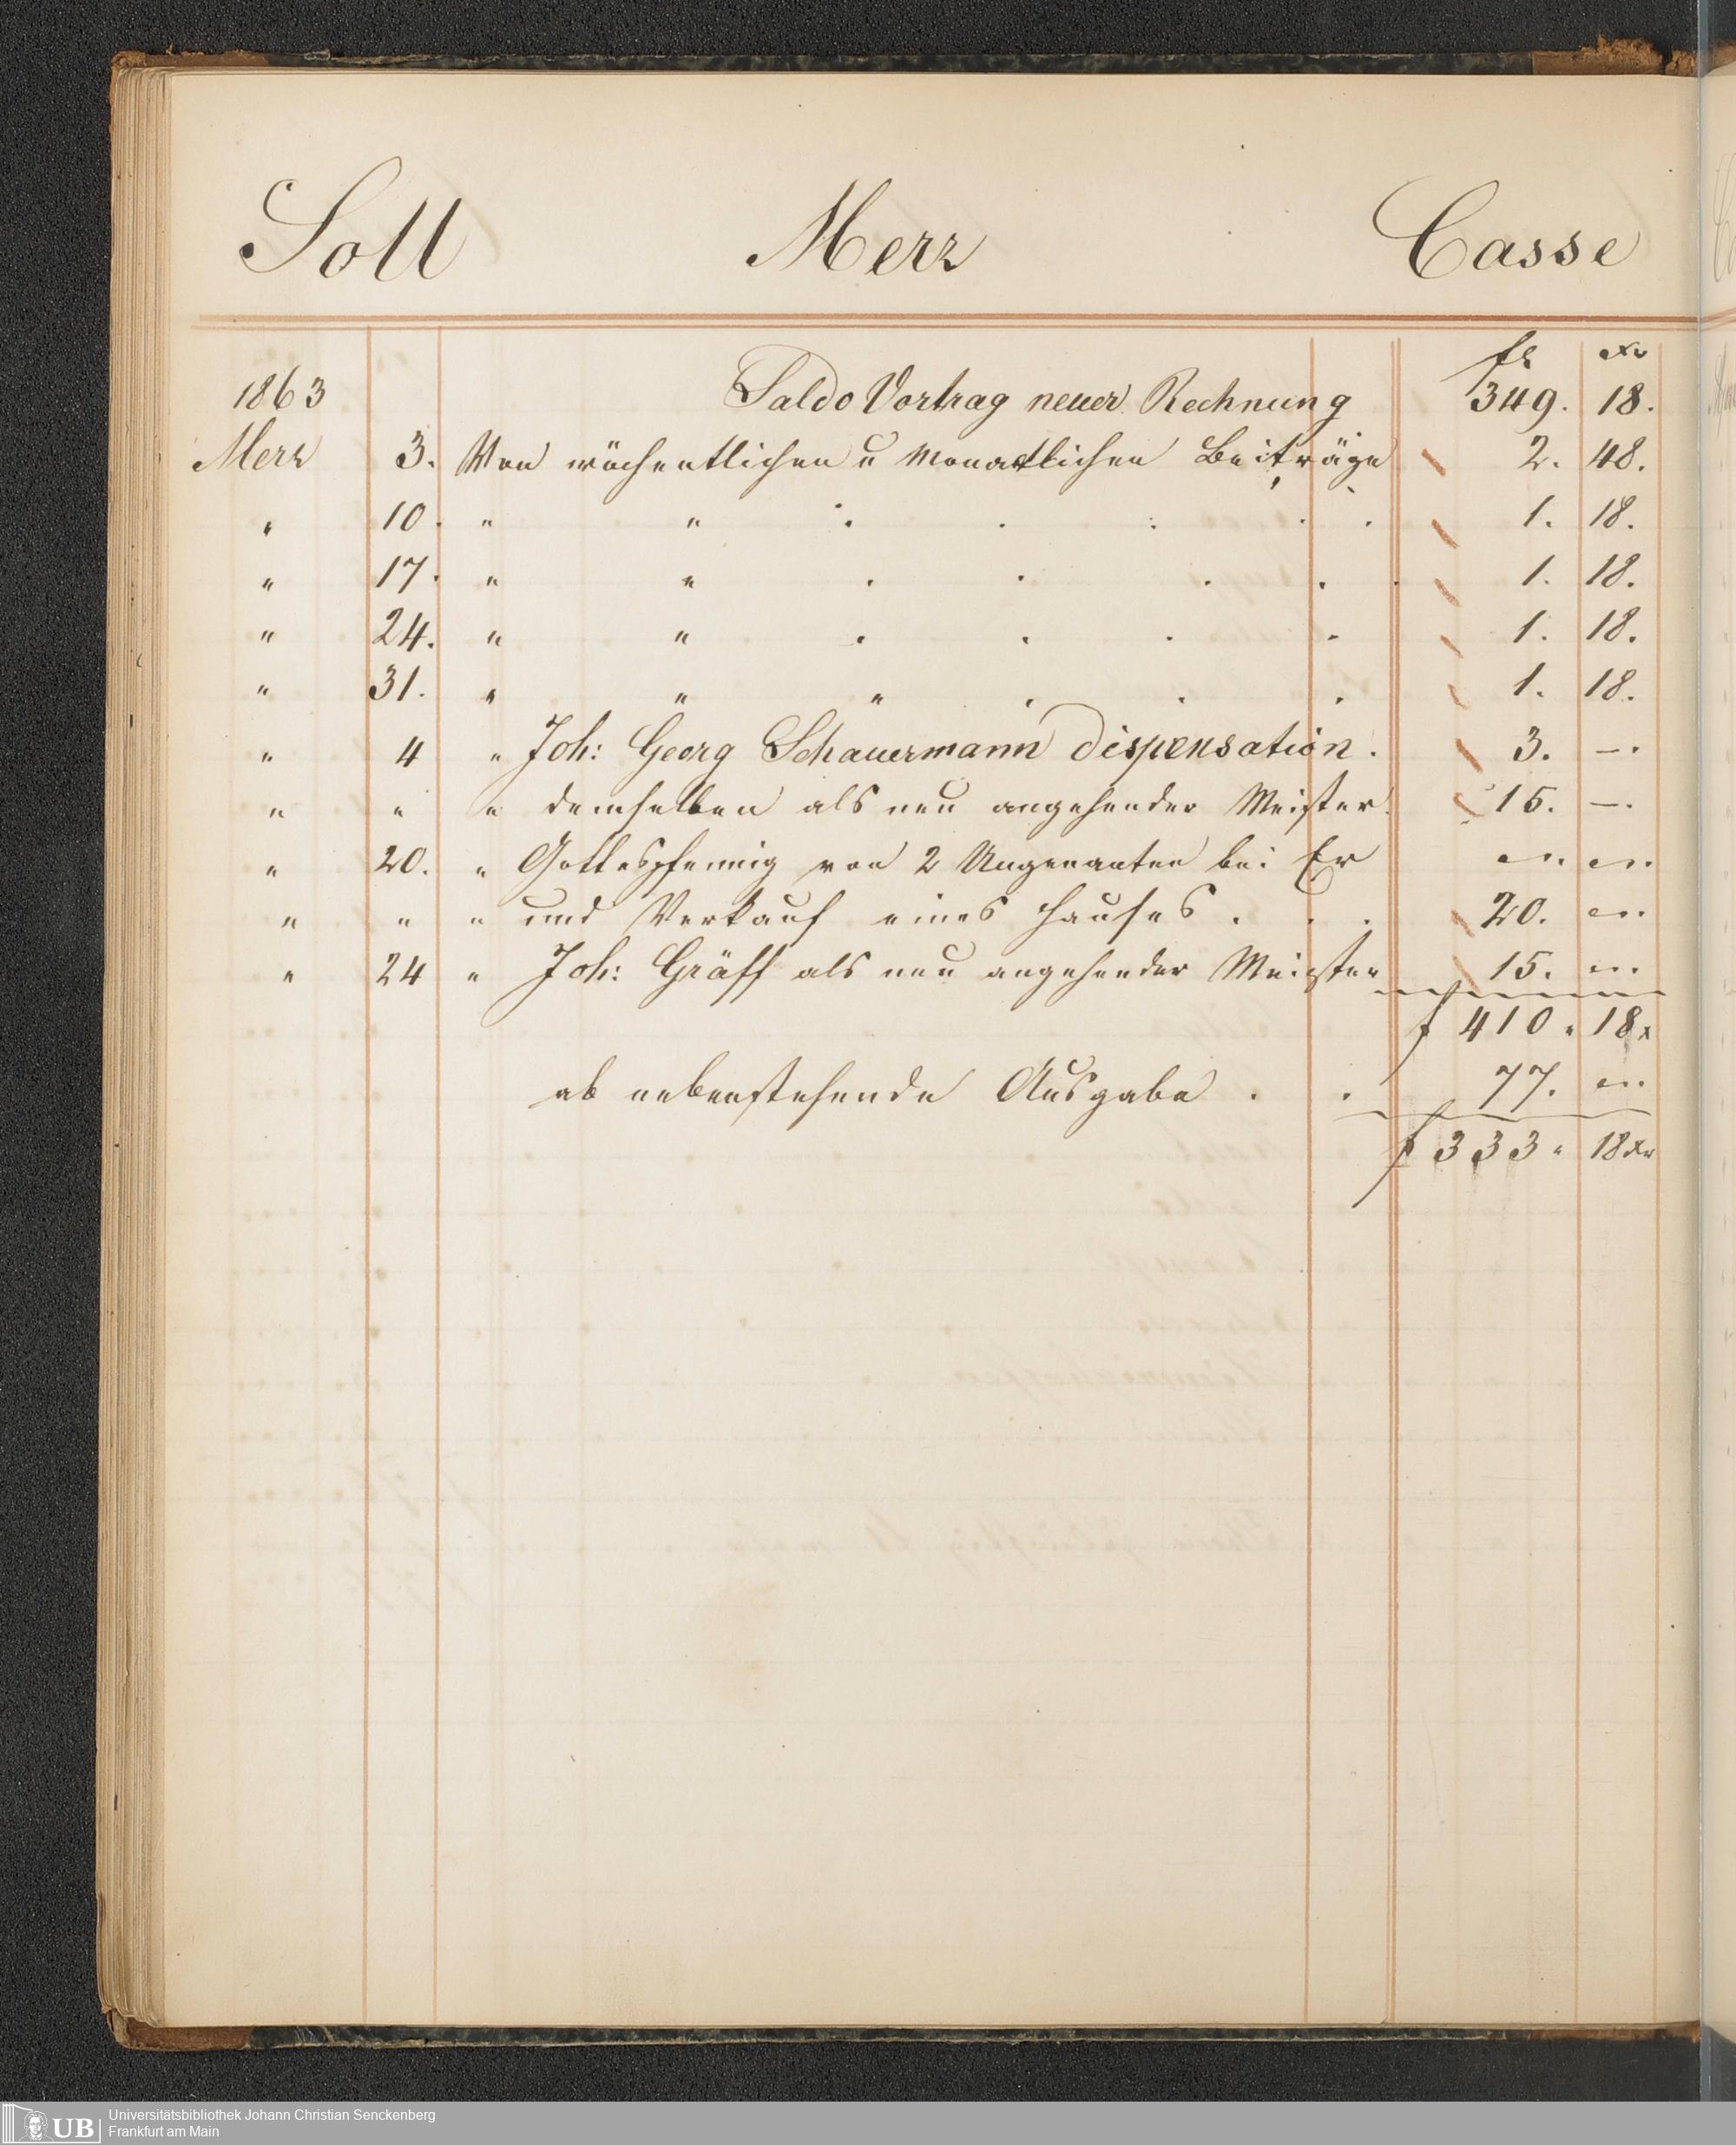 Soll Merz Casse
fl xr
1863 Saldo Vortrag neuer Rechnung 349. 18.
Merz 3. Von wöchentlichen u Monatlichen Beiträge 2. 48.
" 10. " " . . . . . 1. 18.
" 17. " " . . . . . 1. 18.
" 24. " " . . . . 1. 18.
" 31. " " " . . . 1. 18.
" 4 " Joh: Georg Schauermann dispensation. 3. —.
" " " demselben als neu angehender Meister. 15. —.
" 20. " Gottespfennig von 2 Ungenanten bei Er " "
" " " und Verkauf eines Hauses . . . 20. "
" 24 " Joh: Gräff als neu angehender Meister 15. "
f 410 " 18x
ab nebenstehende Ausgabe . . 77. "
f 333 " 18xr
UB Universitätsbibliothek Johann Christian Senckenberg
Frankfurt am Main